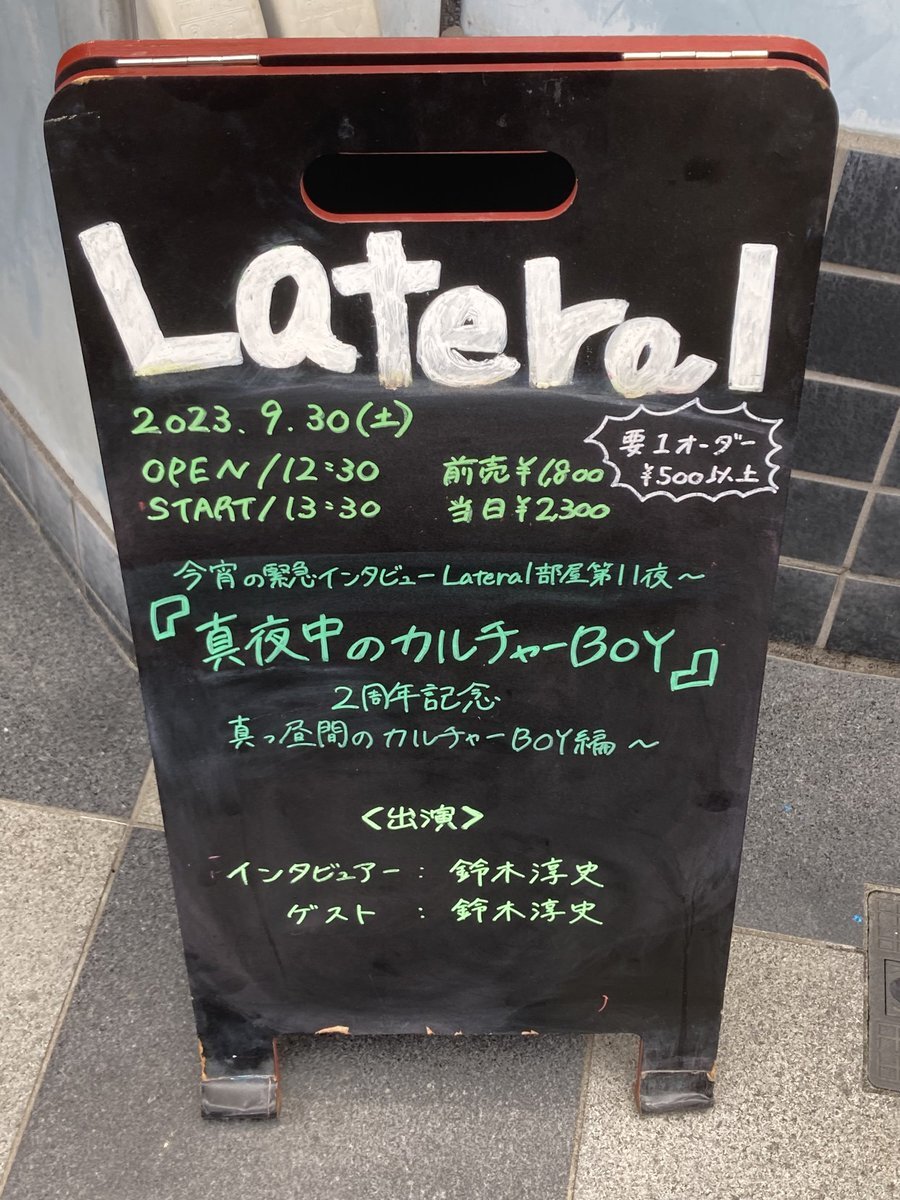 Lateral
2023.9.30(土)
OPEN/12:30 前売¥1,800
START/13:30 当日¥2,300
要1オーダー
¥500以上
今宵の緊急インタビューLateral部屋第11夜～
『真夜中のカルチャーBOY』
2周年記念
真っ昼間のカルチャーBOY編～
<出演>
インタビュアー：鈴木淳史
ゲスト：鈴木淳史